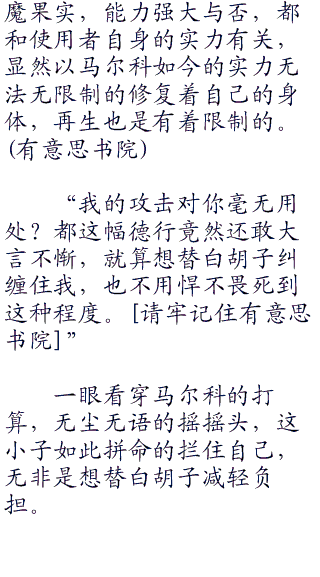 魔果实，能力强大与否，都
和使用者自身的实力有关，
显然以马尔科如今的实力无
法无限制的修复着自己的身
体，再生也是有着限制的。
(有意思书院)
“我的攻击对你毫无用
处？都这幅德行竟然还敢大
言不惭，就算想替白胡子纠
缠住我，也不用悍不畏死到
这种程度。[请牢记住有意思
书院]”
一眼看穿马尔科的打
算，无尘无语的摇摇头，这
小子如此拼命的拦住自己，
无非是想替白胡子减轻负
担。